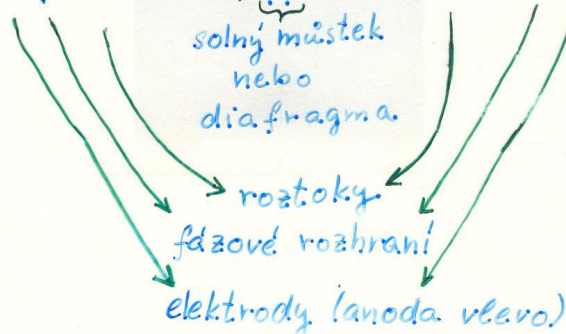 solný můstek
nebo
diafragma
roztoky
fázové rozhraní
elektrody (anoda vlevo)